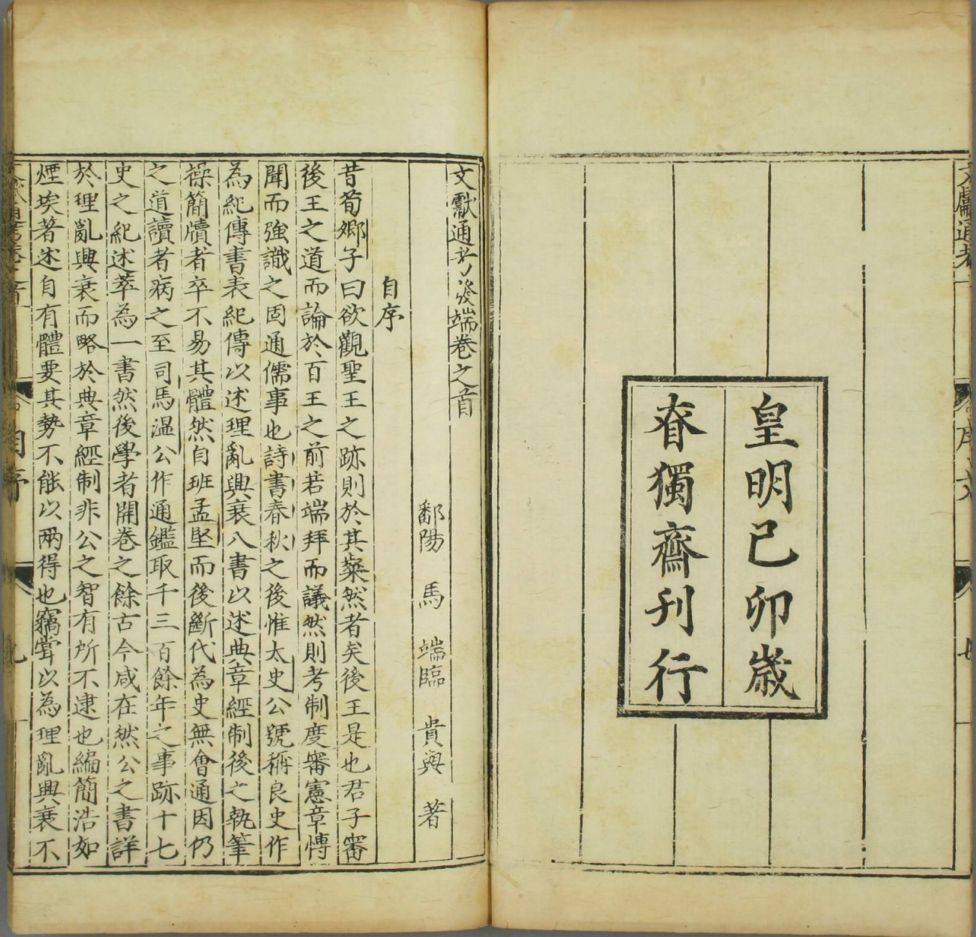 文獻通考
序文
皇明己卯歲
眘獨齋刊行
文獻通考發端卷之首
鄱陽 馬 端臨 貴與 著
自序
昔荀卿子曰欲觀聖王之跡則於其粲然者矣後王是也君子審
後王之道而論於百王之前若端拜而議然則考制度審憲章慱
聞而強識之固通儒事也詩書春秋之後惟太史公號稱良史作
為紀傳書表紀傳以述理亂興衰八書以述典章經制後之執筆
操簡牘者卒不易其體然自班孟堅而後斷代為史無會通因仍
之道讀者病之至司馬溫公作通鑑取千三百餘年之事跡十七
史之紀述萃為一書然後學者開卷之餘古今咸在然公之書詳
於理亂興衰而略於典章經制非公之智有所不逮也編簡浩如
煙埃著述自有體要其勢不能以兩得也竊甞以為理亂興衰不
自序